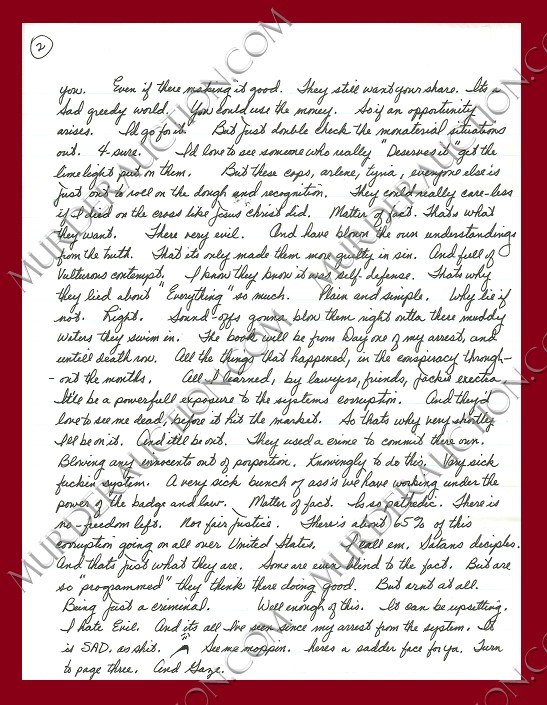 2
you. Even if there making it good. They still want your share. Its a
sad greedy world. You could use the money. So if an opportunity
arises. I'd go for it. But just double check the monaterial situations
out. 4-sure. I'd love to see someone who really "Deserves it" get the
lime light put on them. But these cops, arlene, tyria, everyone else is
just out to roll on the dough and recognition. They could really care-less
if I died on the cross like "Jesus" christ did. Matter of fact. Thats what
they want. There very evil. And have blown the own understandings
from the truth. That its only made them more guilty in sin. And full of
Vulterous contempt. I know they know it was self-defense. Thats why
they lied about "Everything" so much. Plain and simple. Why lie if
not. Right. Sound-offs gonna blow them right outta there muddy
waters they swim in. The book will be from Day one of my arrest, and
untill death row. All the things that happened, in the conspiracy through-
-out the months. All I learned, by lawyers, frinds, Jackie exectra
It'll be a powerfull exposure to the systems corruption. And they'd
love to see me dead, before it hit the market. So thats why very shortly
I'll be on it. And it'll be out. They used a crime to commit there own.
Blowing any innocents out of porportion. Knowingly to do this. Very sick
fuckin system. A very sick bunch of ass's we have working under the
power of the badge and law. Matter of fact. Its so pathedic. There is
no-freedom left. Nor fair justice. There's about 65% of this
corruption going on all over United States. I call em. Satans deciples.
And thats just what they are. Some are even blind to the fact. But are
so "programmed" they think there doing good. But arnt at all.
Being just a criminal. Well enough of this. It can be upsetting.
I hate Evil. And its all I've seen since my arrest from the system. It
is SAD, as shit. See me moppin. heres a sadder face for ya. Turn
to page three. And Gaze.
MURDERAUCTION.COM